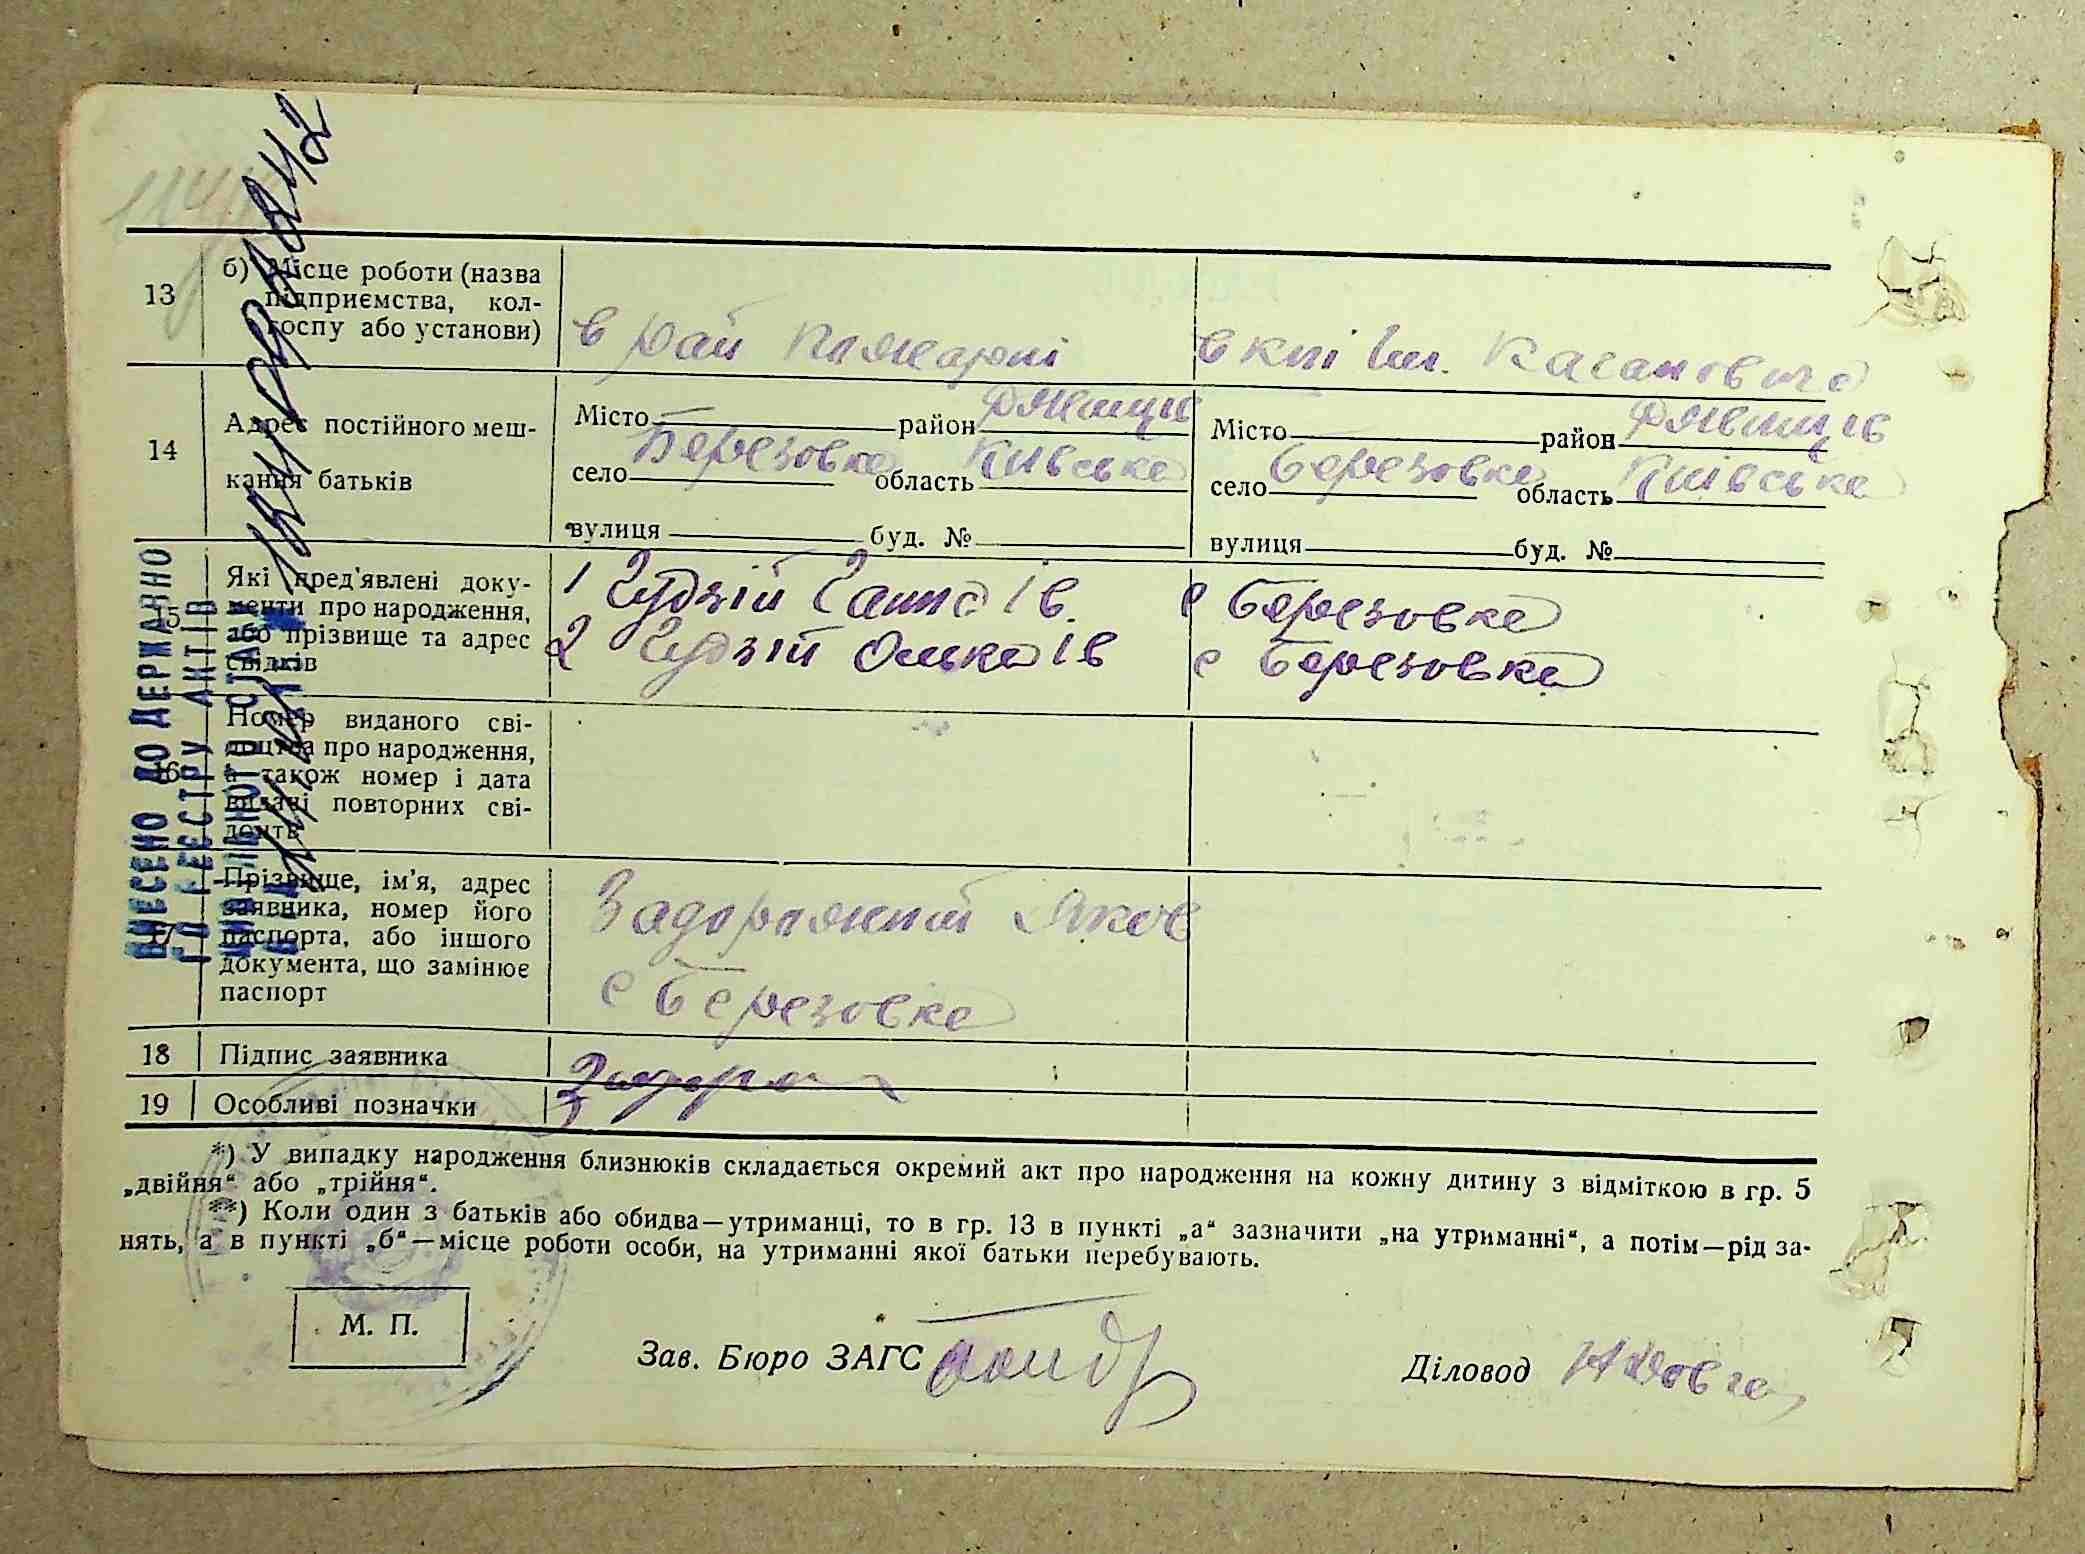 13
б) Місце роботи (назва
підприємства, кол-
госпу або установи)
в рай пожарні
в кпі ім. Касановича
14
Адрес постійного меш-
кання батьків
Місто район
село Березовка область Київська
вулиця буд. №
Місто район
село Березовка область Київська
вулиця буд. №
15
Які пред'явлені доку-
менти про народження,
або прізвище та адрес
свідків
1 Гудзій Ганна Ів. с Березовка
2 Гудзій Олька Ів с Березовка
16
Номер виданого сві-
доцтва про народження,
а також номер і дата
видачі повторних сві-
доцтв
17
Прізвище, ім'я, адрес
заявника, номер його
паспорта, або іншого
документа, що замінює
паспорт
Задорожний Яков
с Березовка
18 Підпис заявника
19 Особливі позначки
ВНЕСЕНО ДО ДЕРЖАВНО
ГО РЕЄСТРУ АКТІВ
ЦИВІЛЬНОГО СТАНУ
*) У випадку народження близнюків складається окремий акт про народження на кожну дитину з відміткою в гр. 5
„двійня“ або „трійня“.
**) Коли один з батьків або обидва—утриманці, то в гр. 13 в пункті „а“ зазначити „на утриманні“, а потім—рід за-
нять, а в пункті „б“—місце роботи особи, на утриманні якої батьки перебувають.
М. П.
Зав. Бюро ЗАГС
Діловод